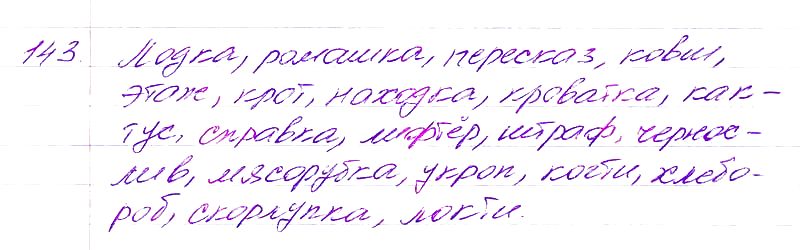 143. Лодка, ромашка, пересказ, ковш,
этаж, крот, находка, кроватка, как-
тус, справка, лифтёр, штраф, чернос-
лив, мясорубка, укроп, когти, хлебо-
роб, скорлупка, локти.